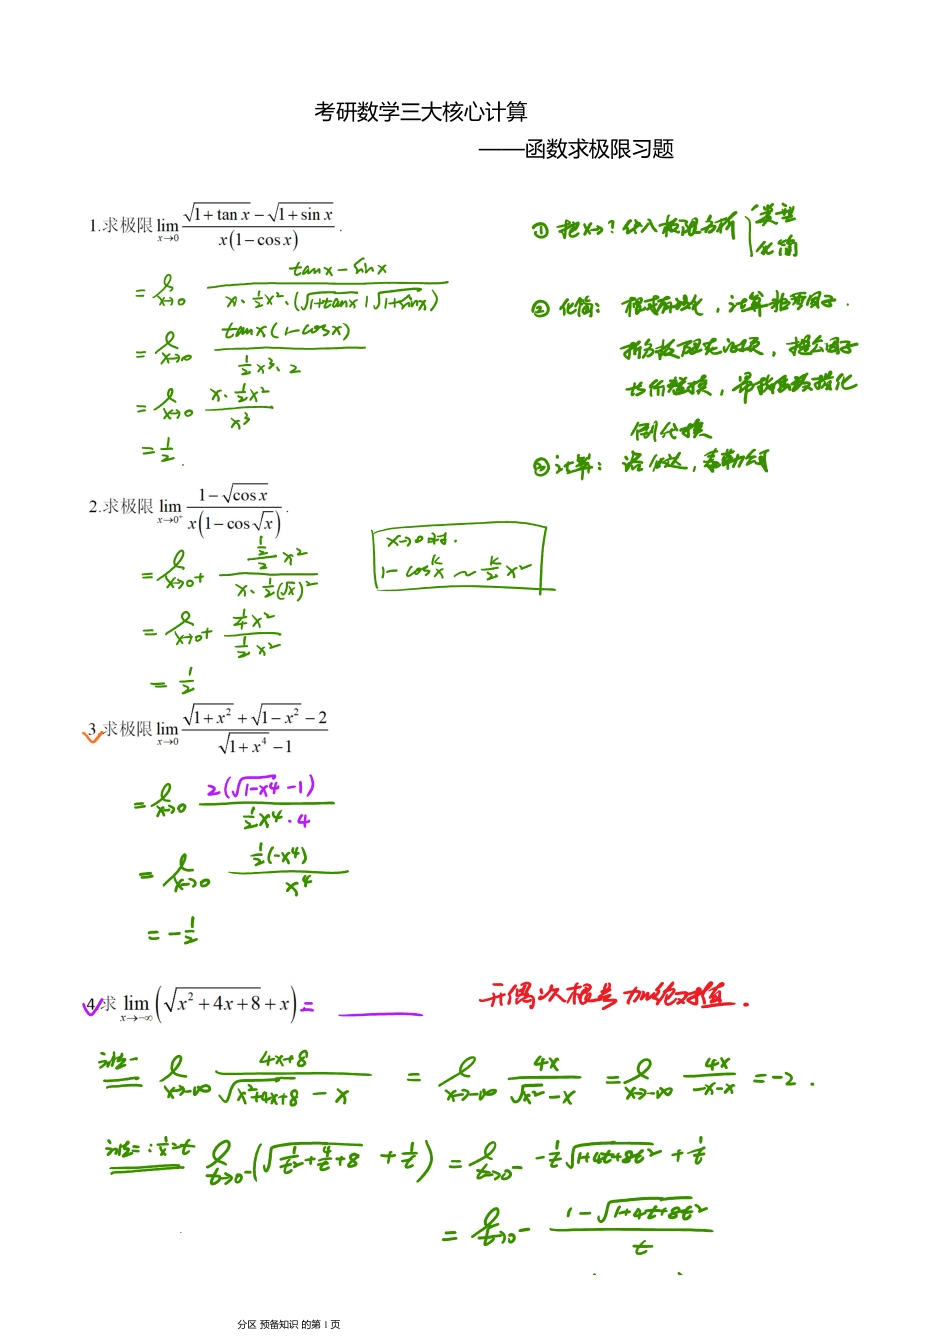 考研数学三大核心计算
——函数求极限习题
1.求极限 lim x→0 (√(1+tan x) − √(1+sin x)) / (x(1−cos x)) .
= lim x→0 (tanx − sinx) / (x·½x²·(√(1+tanx) + √(1+sinx)))
= lim x→0 tanx(1−cosx) / (½x³·2)
= lim x→0 (x·½x²) / x³
= ½ .
① 把x→? 代入极限分析 { 类型 化简
② 化简: 根式有理化，计算非零因子.
拆分极限存在的项，提公因子
等价替换，幂指函数指数化
倒代换
③ 计算: 洛必达，泰勒公式
2.求极限 lim x→0⁺ (1−√(cos x)) / (x(1−cos √x)) .
= lim x→0+ ((½/2)x²) / (x·½(√x)²)
= lim x→0+ (¼x²) / (½x²)
= ½
x→0时.
1−cosᵏx ~ (k/2)x²
3.求极限 lim x→0 (√(1+x²) + √(1−x²) − 2) / (√(1+x⁴) − 1)
= lim x→0 2(√(1−x⁴) −1) / (½x⁴·4)
= lim x→0 ½(−x⁴) / x⁴
= −½
4.求 lim x→−∞ (√(x²+4x+8) + x) = ____
开偶次根号加绝对值.
法一 lim x→−∞ (4x+8) / (√(x²+4x+8) − x) = lim x→−∞ 4x / (√x² − x) = lim x→−∞ 4x / (−x−x) = −2 .
法二: 1/x=t lim t→0⁻ (√(1/t²+4/t+8) + 1/t) = lim t→0⁻ −(1/t)√(1+4t+8t²) + 1/t
= lim t→0⁻ (1−√(1+4t+8t²)) / t
分区 预备知识 的第 1 页